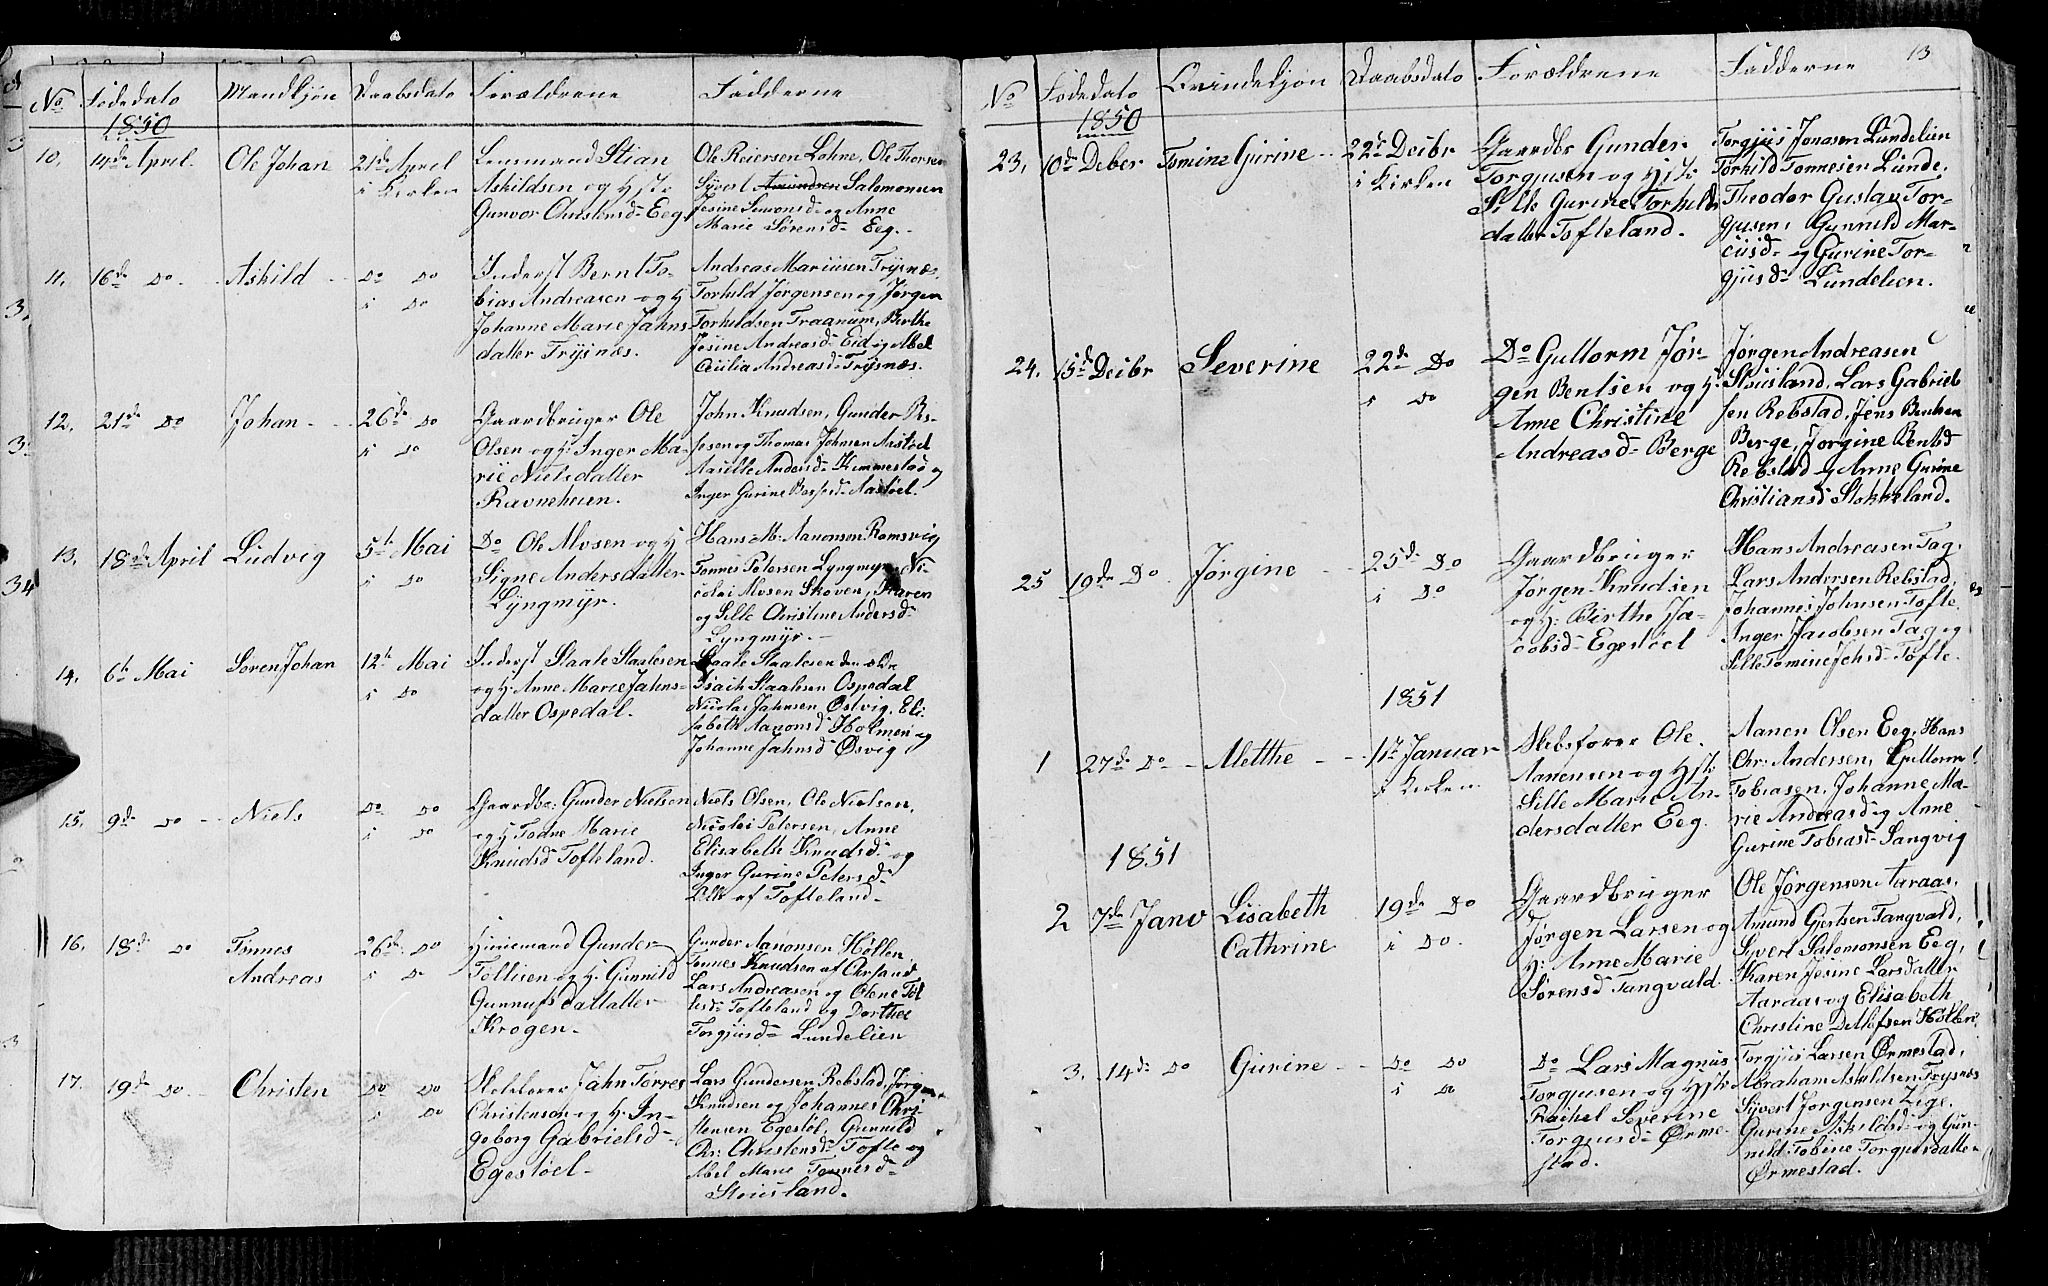 No. Födedato Mandkjön Daabsdato Forældrene Fadderne
1850
10. 14de April. Ole Johan 21de April
i Kirken
Lensmand Stian
Askildsen og Hstr
Gunvor Christensd. Eeg.
Ole Reiersen Lohne, Ole Thorsen
Syvert Amundsen Salomonsen
Jesine Simonsd. og Anne
Marie Sørensd. Eeg.
11. 16de Do Askild Do Do
i Do
Inderst Bernt To-
bias Andreasen og H
Johanne Marie Jahns
datter Trysnæs.
Andreas Mariusen Trysnæs.
Torkild Jørgensen og Jørgen
Torkildsen Traanum, Berthe
Jesine Andreasd. Eid og Abel
Cecilia Andreasd. Trysnæs.
12. 21de Do Johan 26de Do
i Do
Gaardbruger Ole
Olsen og H: Inger Ma-
rie Nielsdatter
Ravneheien.
John Knudsen, Gunder Bes-
sesen og Thomas Johnsen Aastøel
Andersd. Kimmestad og
Inger Gurine Aastøel.
13. 18de April Ludvig 5te Mai
i Do
Do Ole Alvsen og H
Signe Andersdatter
Lyngmyr.
Hans M. Aanonson Ramsvig
Tønnes Petersen Lyngmyr, Ni-
colai Alvsen Skoven, Karen
og Sille Christine Andersd.
Lyngmyr.
14. 6te Mai Søren Johan 12te Mai
i Do
Inderst Staale Staalesen
og H: Anne Marie Jahns-
datter Ospedal.
Staale Staalesen den ældre
Isach Staalesen Ospedal
Nicolai Jahnsen Østvig, Eli-
sabeth Aanonsd. Holmen og
Johanne Jahnsd. Øsvig
15. 9de Do Niels Do Do
i Do
Gaardbr: Gunder Nielsen
og H Todne Marie
Knudsd. Tofteland.
Niels Olsen, Ole Nielsen,
Nicolai Petersen, Anne
Elisabeth Knudsd. og
Inger Gurine Petersd.
Alle af Tofteland.
16. 18de Do Tønnes
Andreas
26de Do
i Do
Huusmand Gunder
Tollisen og H: Gunnild
Gunnufsdattatter
Krogen.
Gunder Aanonsen Høllen,
Tønnes Knudsen af Chrsand
Lars Andreasen og Olene Tol
lesd. Tofteland og Dorthee
Torgjusd. Lundelien
17. 19de Do Christen Do Do
i Do
Skibsfører Jahn Torres
Christensen og H. In-
geborg Gabrielsd.
Egestøel.
Lars Gundersen Rebstad, Jørgen
Knudsen og Johannes Chri-
stensen Egestøl, Gunnild
Chr: Christensd. Tofte og
Abel Marie Tønnesd.
Stousland.
13
No Födedato Qvindekjön Daabsdato Forældrene Fadderne
1850
23. 10de Deber Tomine Gurine 22de Decbr
i Kirken
Gaardbr Gunder
Torgjusen og Hstr
Sille Gurine Torkilds
datter Tofteland.
Torgjus Jonasen Lundelien
Torkild Tønnesen Lunde,
Theodor Gustav Tor-
gjusen, Gunnild Mar-
cusd. og Gurine Tor-
gjusd. Lundelien.
24. 15de Decbr Severine 22de Do
i Do
Do Guttorm Jør-
gen Bentsen og H.
Anne Christine
Andreasd. Berge
Jørgen Andreasen
Stousland, Lars Gabriel-
sen Rebstad, Jens Bentsen
Berge, Jorgine Bentsd
Rebstad og Anne Gurine
Christiansd Stokkeland.
25 19de Do Jørgine 25de Do
i Do
Gaardbruger
Jørgen Knudsen
og H: Birthe Ja-
cobsd. Egestøel
Hans Andreasen Tag,
Lars Andersen Rebstad,
Johannes Johnsen Tofte
Inger Jacobsen Tag og
Sille Tomine Johsd. Tofte
1851
1 27de Do Alethe 1te Januar
i Kirken
Skibsfører Ole
Aanensen og Hstr
Sille Marie An-
dersdatter Eeg.
Aanen Olsen Eeg, Hans
Chr: Andersen, Guttorm
Tobiasen, Johanne Ma-
rie Andreasd. og Anne
Gurine Tobiasd. Langvig
1851
2 7de Janv Lisabeth
Cathrine
19de Do
i Do.
Gaardbruger
Jørgen Larsen og
H: Anne Marie
Sørensd Tangvald.
Ole Jørgensen Aaraas,
Amund Gjertsen Tangvald,
Syvert Salomonsen Eeg,
Karen Jesine Larsdatter
Aaraas og Elisabeth
Christine Detlefsen Høllen
3. 14de Do Gurine Do Do
i Do
Do Lars Magnus
Torgjusen og Hstr
Rachel Severine
Torgjusd. Ørme-
stad.
Torgjus Larsen Ørmestad,
Abraham Askildsen Trysnæs
Syvert Jørgensen Zige.
Gurine Askildsd. og Gun-
nild Tobine Torgjusdatter
Ørmestad.